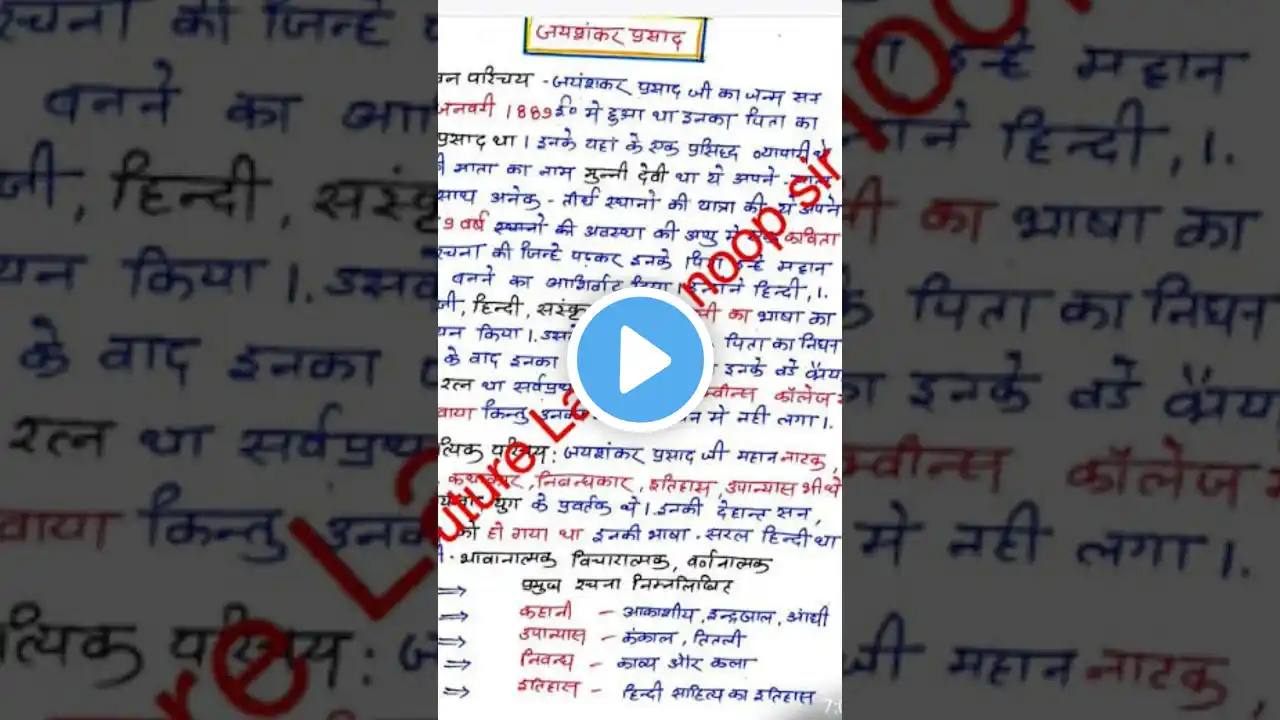 जयशंकर प्रसाद
वन परिचय - जयंशकर प्रसाद जी का जन्म सन
जनवरी 1889 ई० मे हुआ था इनका पिता का
प्रसाद था । इनके यहां के एक प्रसिद्ध व्यापारी थे
माता का नाम मुन्नी देवी था ये अपने
साथ अनेक - तीर्थ स्थानों की यात्रा की ये अपने
9 वर्ष स्थानों की अवस्था की आयु मे कविता
रचना की जिन्हे पढ़कर इनके पिता उन्हे महान
बनने का आशिर्वाद दिया । हिन्दी, ।.
जी, हिन्दी, संस्कृ का भाषा का
यन किया ।. उसके पिता का निधन
के वाद इनका इनके बडे
रत्न था सर्वप्रथ क्वीन्स कॉलेज
वाया किन्तु उनका मे नही लगा ।.
त्यिक परिचय : जयशंकर प्रसाद जी महान नाटक,
कथाकार, निबन्धकार, इतिहास, उपान्यास भी थे
युग के प्रवर्तक थे । इनकी देहान्त सन,
को हो गया था इनकी भाषा - सरल हिन्दी था
- भावानात्मक विचारात्मक, वर्णनात्मक
प्रमुख रचना निम्नलिखित
⇒ कहानी - आकाशीय, इन्द्रजाल, आंधी
⇒ उपान्यास - कंकाल, तितली
⇒ निवन्ध - काव्य और कला
⇒ इतिहास - हिन्दी साहित्य का इतिहास